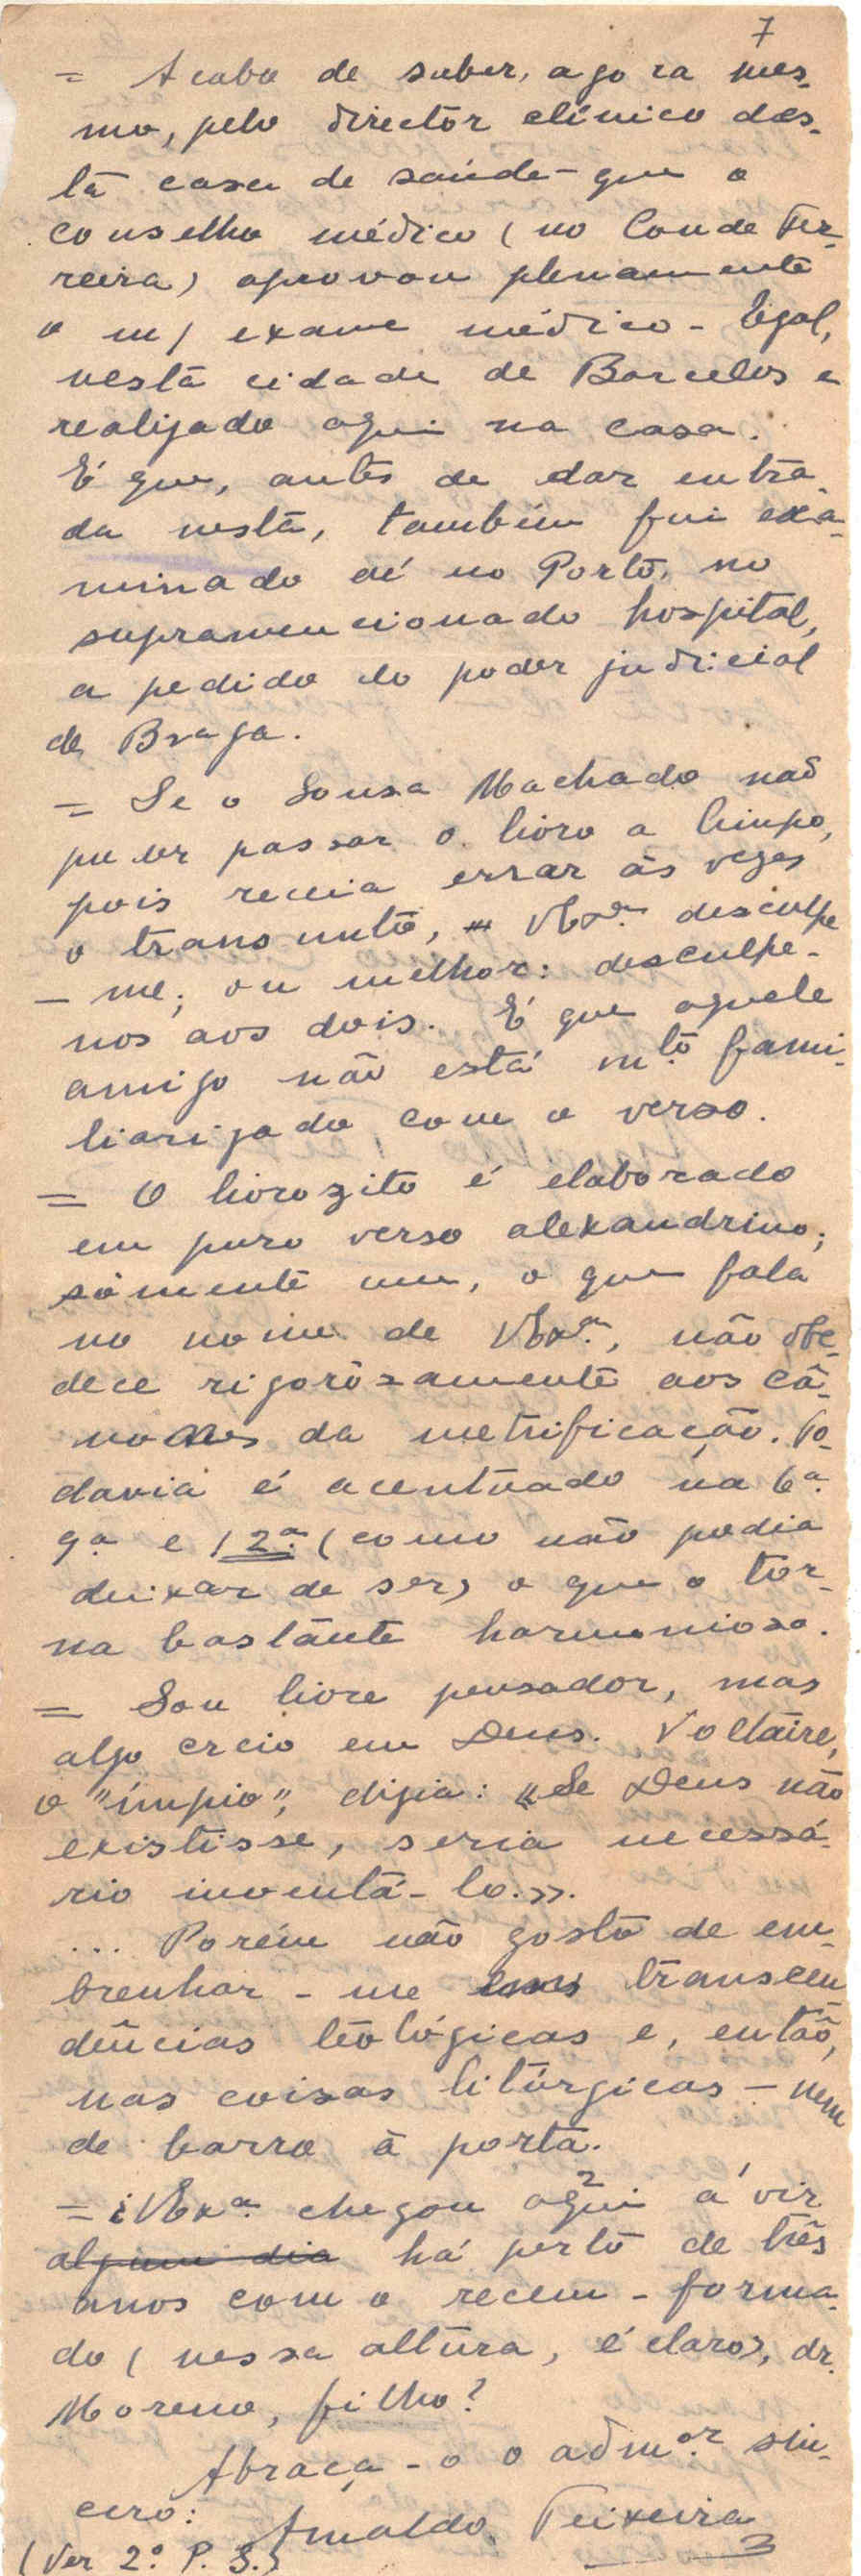 7
= Acabo de saber, agora mes-
mo, pelo director clínico des-
ta casa de saúde - que o
conselho médico (no Conde Fer-
reira) aprovou plenamente
o m/ exame médico-legal,
nesta cidade de Barcelos e
realizado aqui na casa.
É que, antes de dar entra-
da nesta, também fui exa-
minado aí no Porto, no
supramencionado hospital,
a pedido do poder judicial
de Braga.
= Se o Sousa Machado não
puder passar o livro a limpo,
pois receia errar às vezes
o transunto, VExª. desculpe
- me; ou melhor: desculpe-
nos aos dois. É que aquele
amigo não está mtº fami-
liarizado com o verso.
= O livrozito é elaborado
em puro verso alexandrino;
sòmente um, o que fala
no nome de VExª., não obe-
dece rigoròsamente aos câ-
nones da metrificação. To-
davia é acentuado na 6ª.
9ª e 12ª. (como não podia
deixar de ser) o que o tor-
na bastante harmonioso.
= Sou livre pensador, mas
algo creio em Deus. Voltaire,
o "ímpio", dizia: «Se Deus não
existisse, seria necessá-
rio inventá-lo.».
... Porém não gosto de em-
brenhar-me transcen-
dências teológicas e, então,
nas coisas litúrgicas - nem
de barro à porta.
= ¿VExª. chegou aqui a vir
algum dia há perto de três
anos com o recem-forma-
do (nessa altura, é claro), dr.
Moreno, filho?
Abraça-o o admºr sin-
cero:
Arnaldo Teixeira
(Ver 2º P. S.)